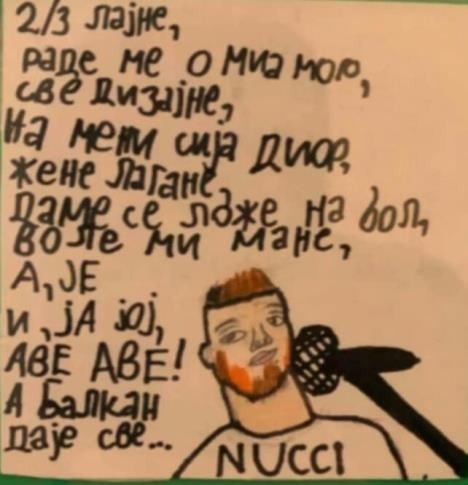 2/3 лајне,
раде ме о миа мою,
све дизајне,
на мени сија диор,
жене лагане,
даме се ложе на бол,
воле ми мане,
А, ЈЕ
и, јА јој,
АВЕ АВЕ!
А Балкан
даје све...
NUCCI